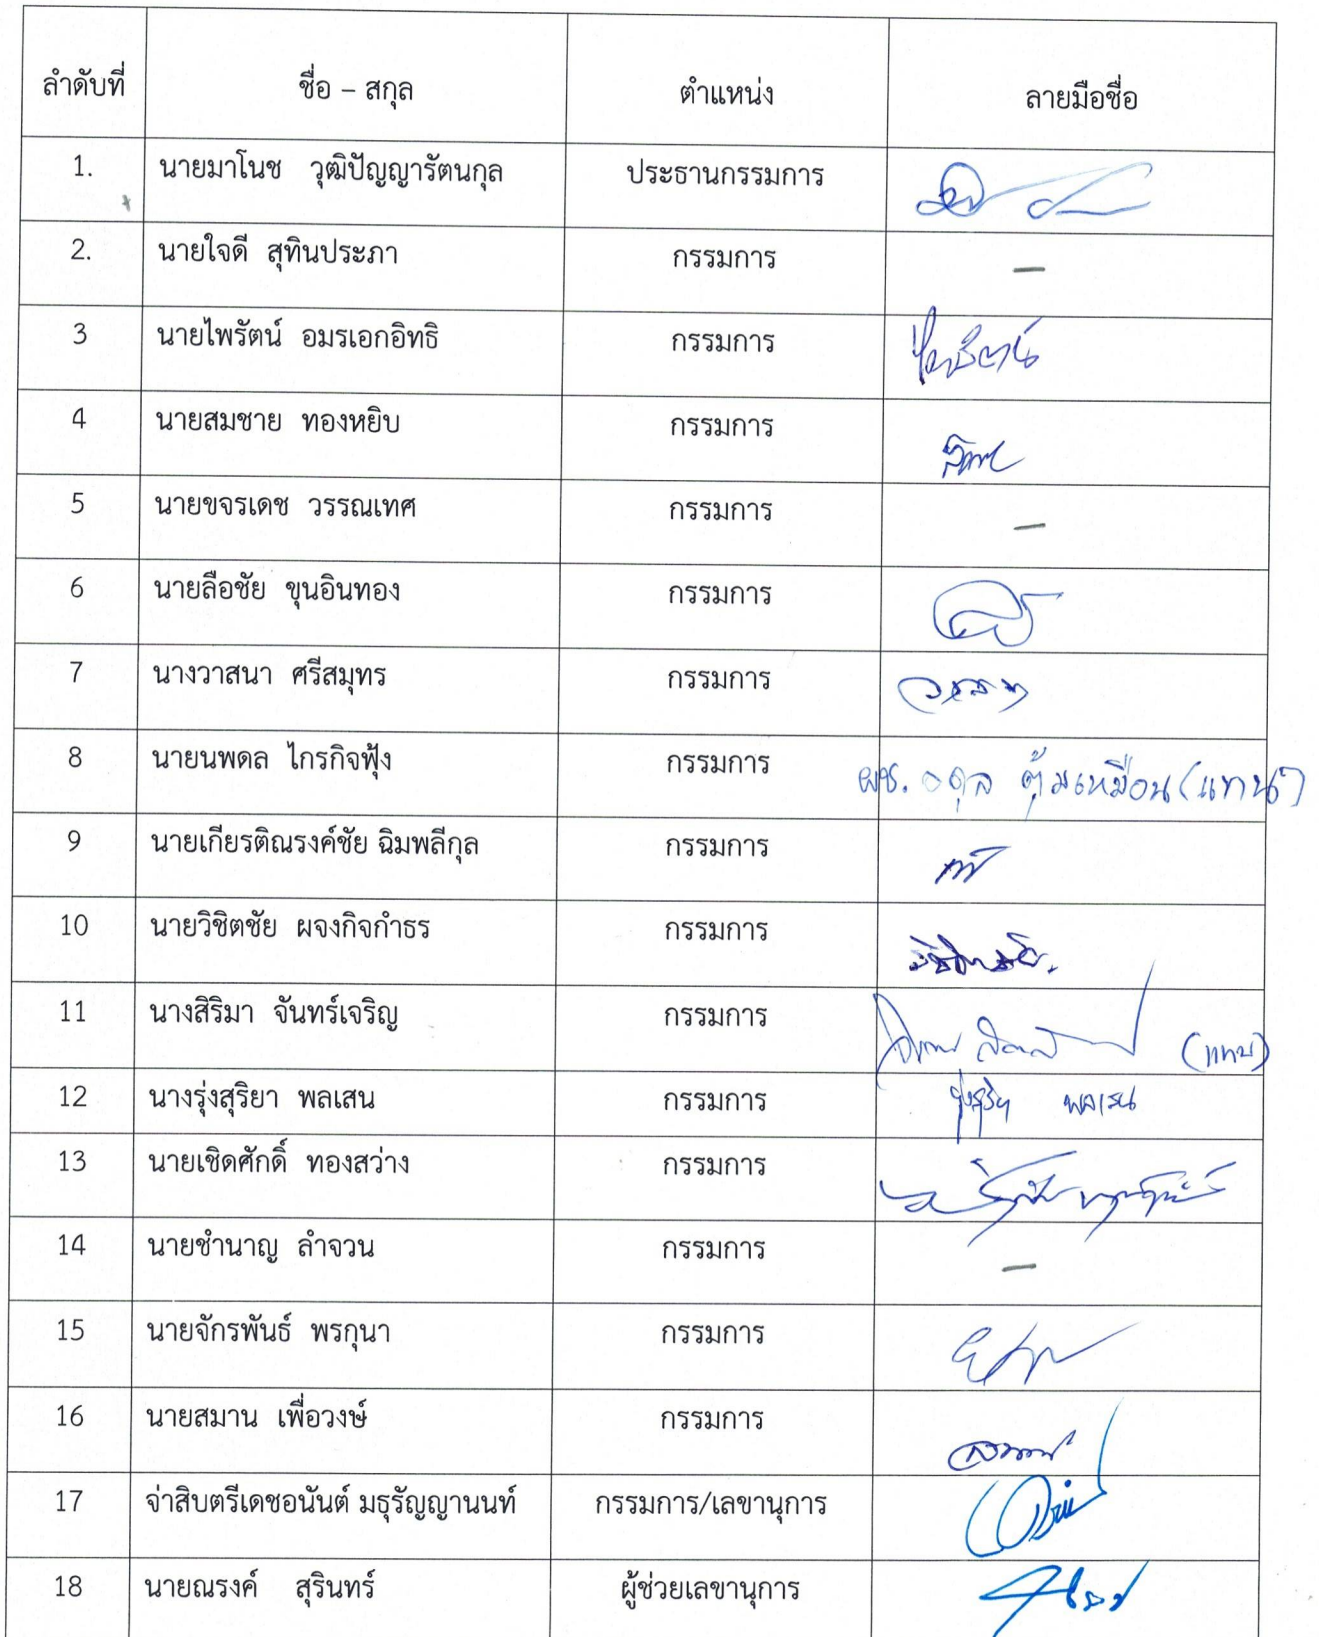 ลำดับที่ ชื่อ – สกุล ตำแหน่ง ลายมือชื่อ
1. นายมาโนช วุฒิปัญญารัตนกุล ประธานกรรมการ
2. นายใจดี สุทินประภา กรรมการ –
3 นายไพรัตน์ อมรเอกอิทธิ กรรมการ ไพรัตน์
4 นายสมชาย ทองหยิบ กรรมการ
5 นายขจรเดช วรรณเทศ กรรมการ –
6 นายลือชัย ขุนอินทอง กรรมการ
7 นางวาสนา ศรีสมุทร กรรมการ
8 นายนพดล ไกรกิจฟุ้ง กรรมการ ผช. อดุล ตุ้มเหมือน (แทน)
9 นายเกียรติณรงค์ชัย ฉิมพลีกุล กรรมการ
10 นายวิชิตชัย ผจงกิจกำธร กรรมการ
11 นางสิริมา จันทร์เจริญ กรรมการ (แทน)
12 นางรุ่งสุริยา พลเสน กรรมการ รุ่งสุริยา พลเสน
13 นายเชิดศักดิ์ ทองสว่าง กรรมการ
14 นายชำนาญ ลำจวน กรรมการ –
15 นายจักรพันธ์ พรกุนา กรรมการ
16 นายสมาน เพื่อวงษ์ กรรมการ
17 จ่าสิบตรีเดชอนันต์ มธุรัญญานนท์ กรรมการ/เลขานุการ
18 นายณรงค์ สุรินทร์ ผู้ช่วยเลขานุการ